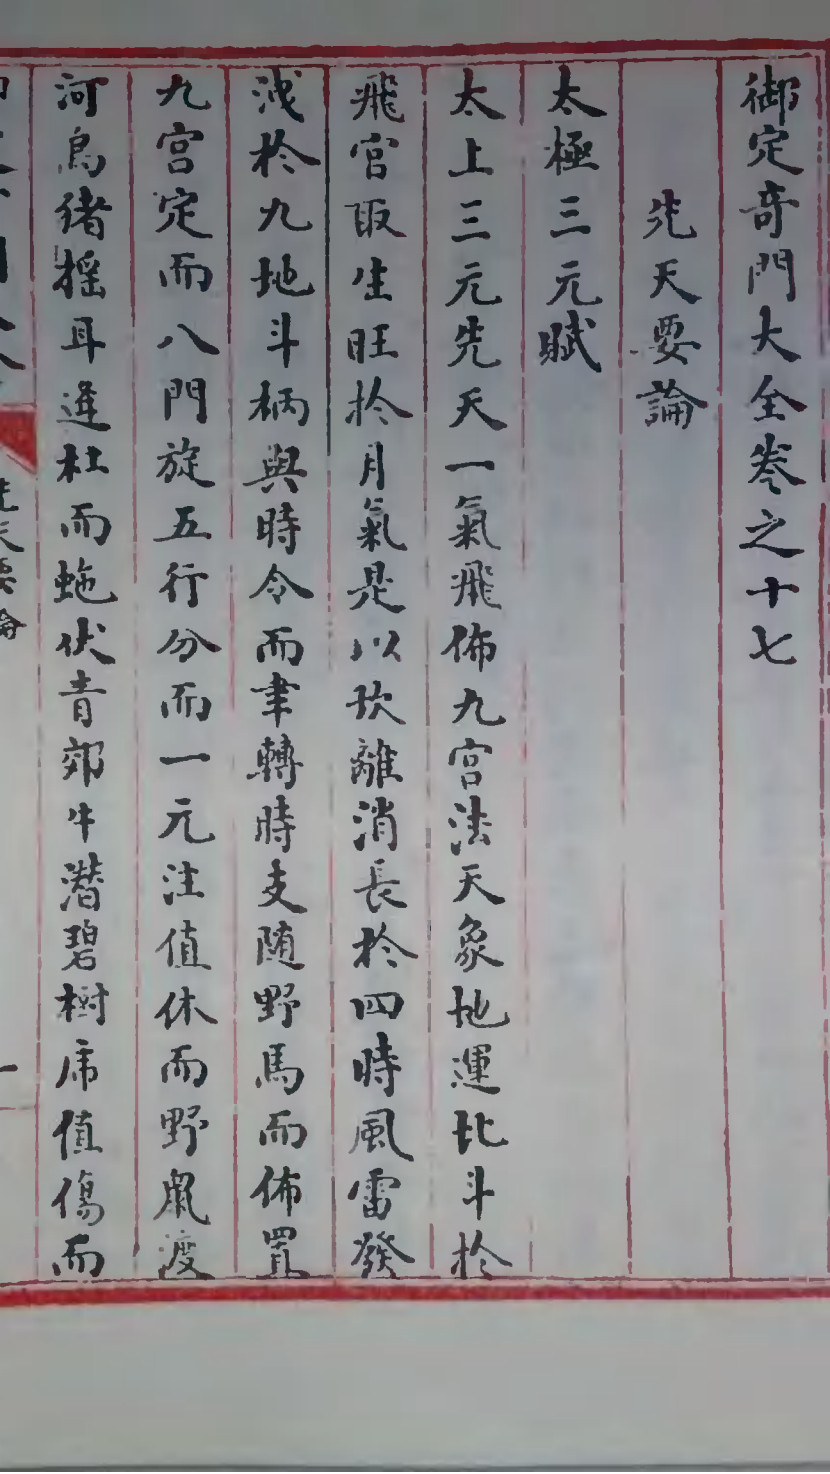 御定奇門大全卷之十七
先天要論
太極三元賦
太上三元先天一氣飛佈九宮法天象地運比斗於
飛宮取生旺於月氣是以坎離消長於四時風雷發
洩於九地斗柄與時令而聿轉時支随野馬而佈置
九宮定而八門旋五行分而一元注值休而野鼠渡
河烏猪摇耳逢杜而虵伏青郊牛潛碧樹乕值傷而
先天要論
一